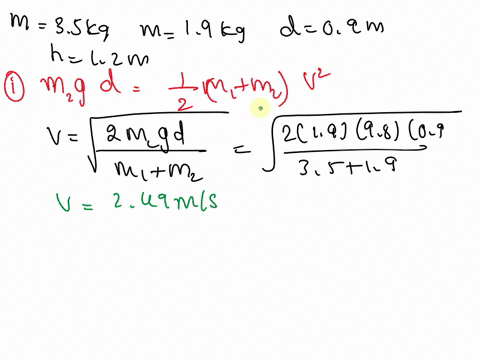 m = 3.5kg m = 1.9kg d = 0.9m
h = 1.2m
① m₂gd = 1/2 (m₁+m₂) v²
v = √(2m₂gd / m₁+m₂) = √(2(1.9)(9.8)(0.9 / 3.5+1.9)
v = 2.49m/s